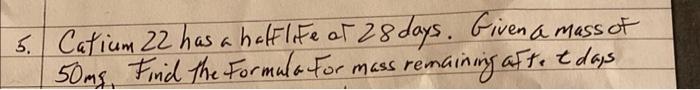 5. Catium 22 has a halflife of 28 days. Given a mass of
50mg, Find the Formula for mass remaining aft. t days